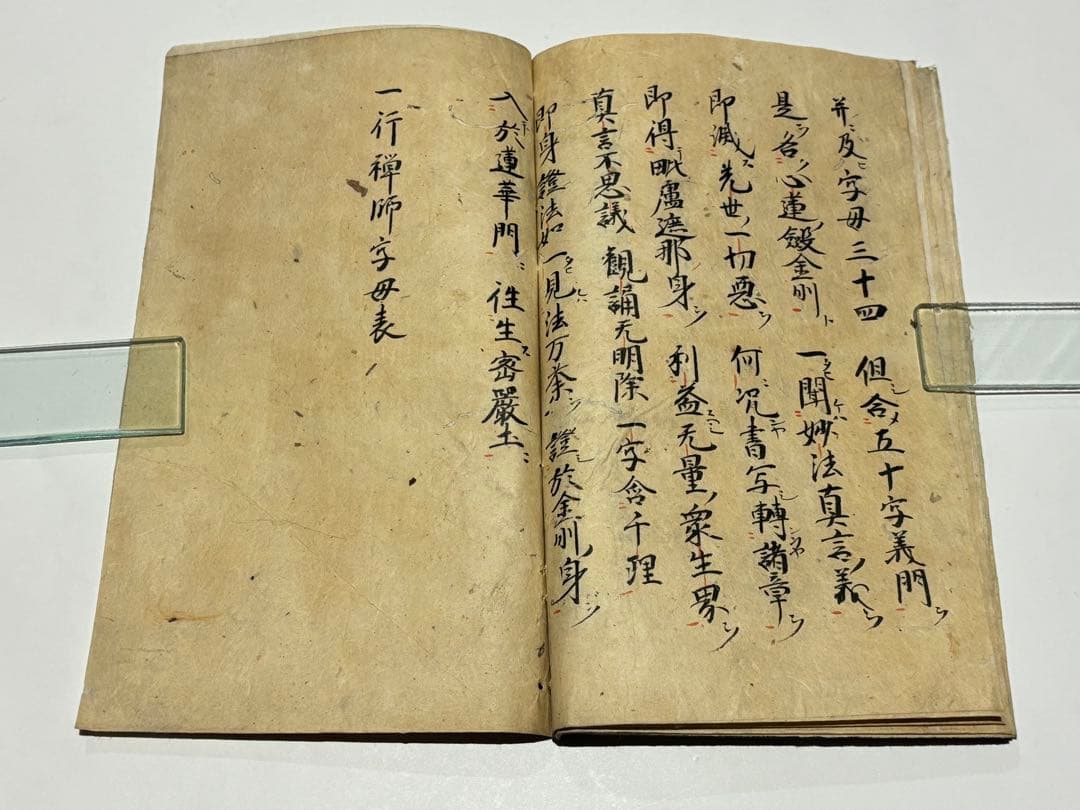 并及字母三十四 但含五十字義門
是名心蓮金剛 一聞妙法真言義
即滅先世一切悪 何况書写轉諸章
即得毗盧遮那身 利益无量衆生界
真言不思議 観誦无明除 一字含千理
即身證法如 一見法万荼 證於金剛身
入於蓮華門 往生密嚴土
一行禅師字母表